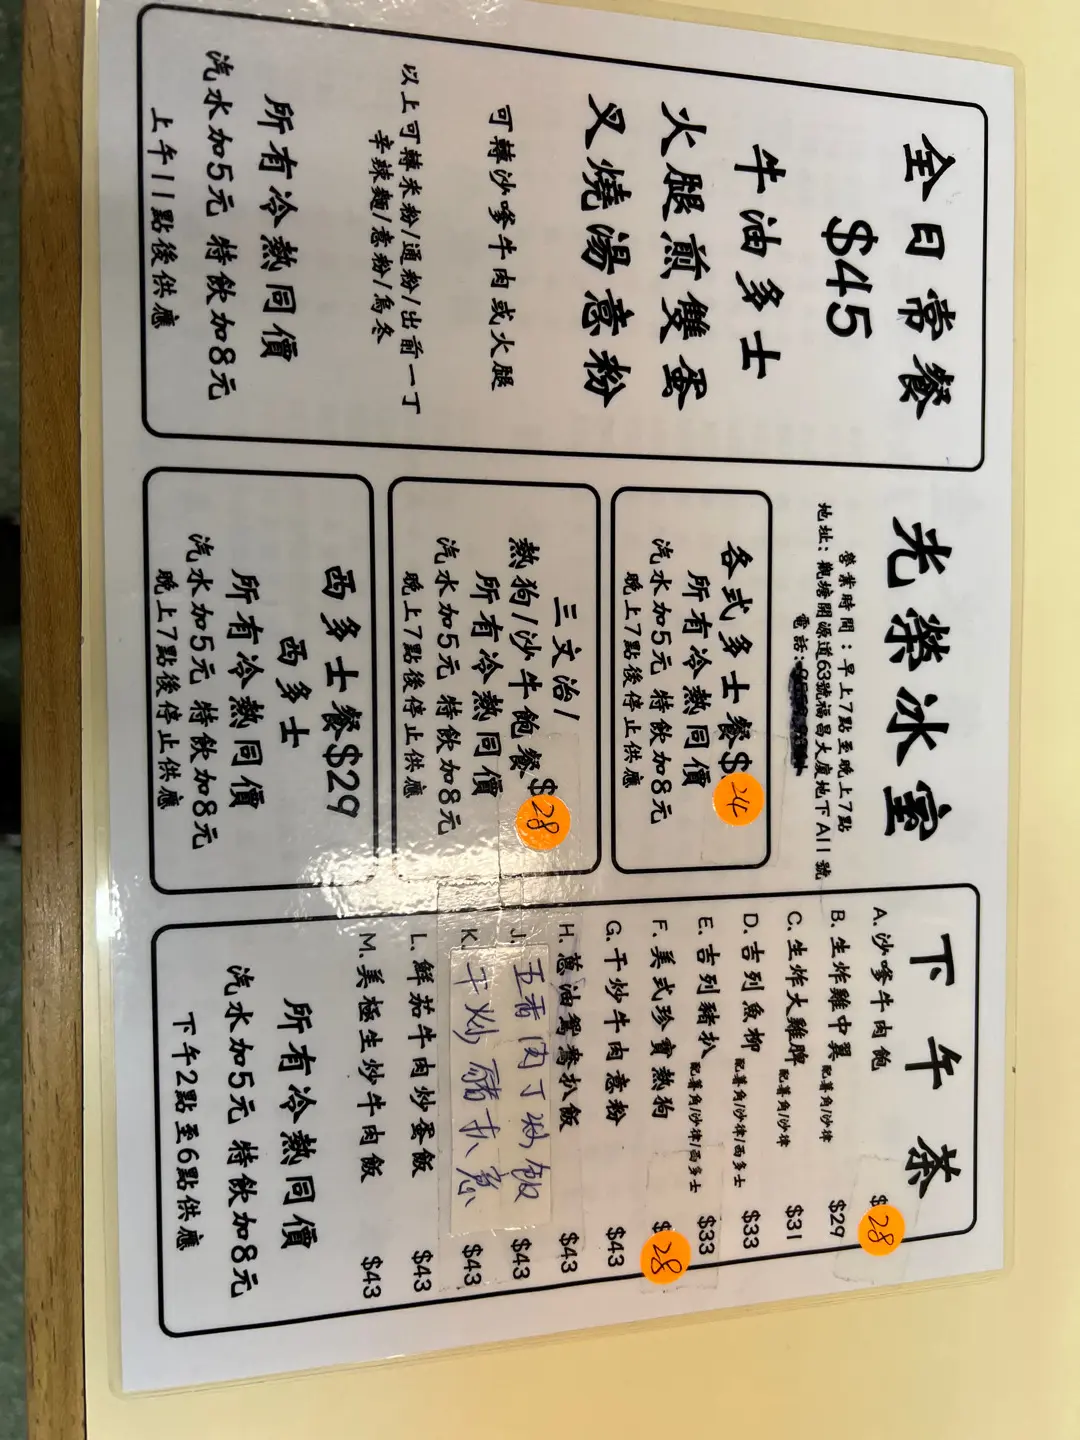 全日常餐
$45
牛油多士
火腿煎雙蛋
叉燒湯意粉
可轉沙嗲牛肉或火腿
以上可轉米粉/通粉/出前一丁
辛辣麵/意粉/烏冬
所有冷熱同價
汽水加5元 特飲加8元
上午11點後供應
光榮冰室
營業時間：早上7點至晚上7點
地址：觀塘開源道63號福昌大廈地下A11號
電話:
各式多士餐$24
所有冷熱同價
汽水加5元 特飲加8元
晚上7點後停止供應
三文治/
熱狗/沙牛飽餐$28
所有冷熱同價
汽水加5元 特飲加8元
晚上7點後停止供應
西多士餐$29
西多士
所有冷熱同價
汽水加5元 特飲加8元
晚上7點後停止供應
下午茶
A.沙嗲牛肉飽 $28
B.生炸雞中翼 配薯角/沙律 $29
C.生炸大雞脾 配薯角/沙律 $31
D.吉列魚柳 配薯角/沙律/西多士 $33
E.吉列豬扒 配薯角/沙律/西多士 $33
F.美式珍寶熱狗 $28
G.干炒牛肉意粉 $43
H.蔥油鴛鴦扒飯 $43
J.五香肉丁炒飯 $43
K.干炒豬扒意 $43
L.鮮茄牛肉炒蛋飯 $43
M.美極生炒牛肉飯 $43
所有冷熱同價
汽水加5元 特飲加8元
下午2點至6點供應